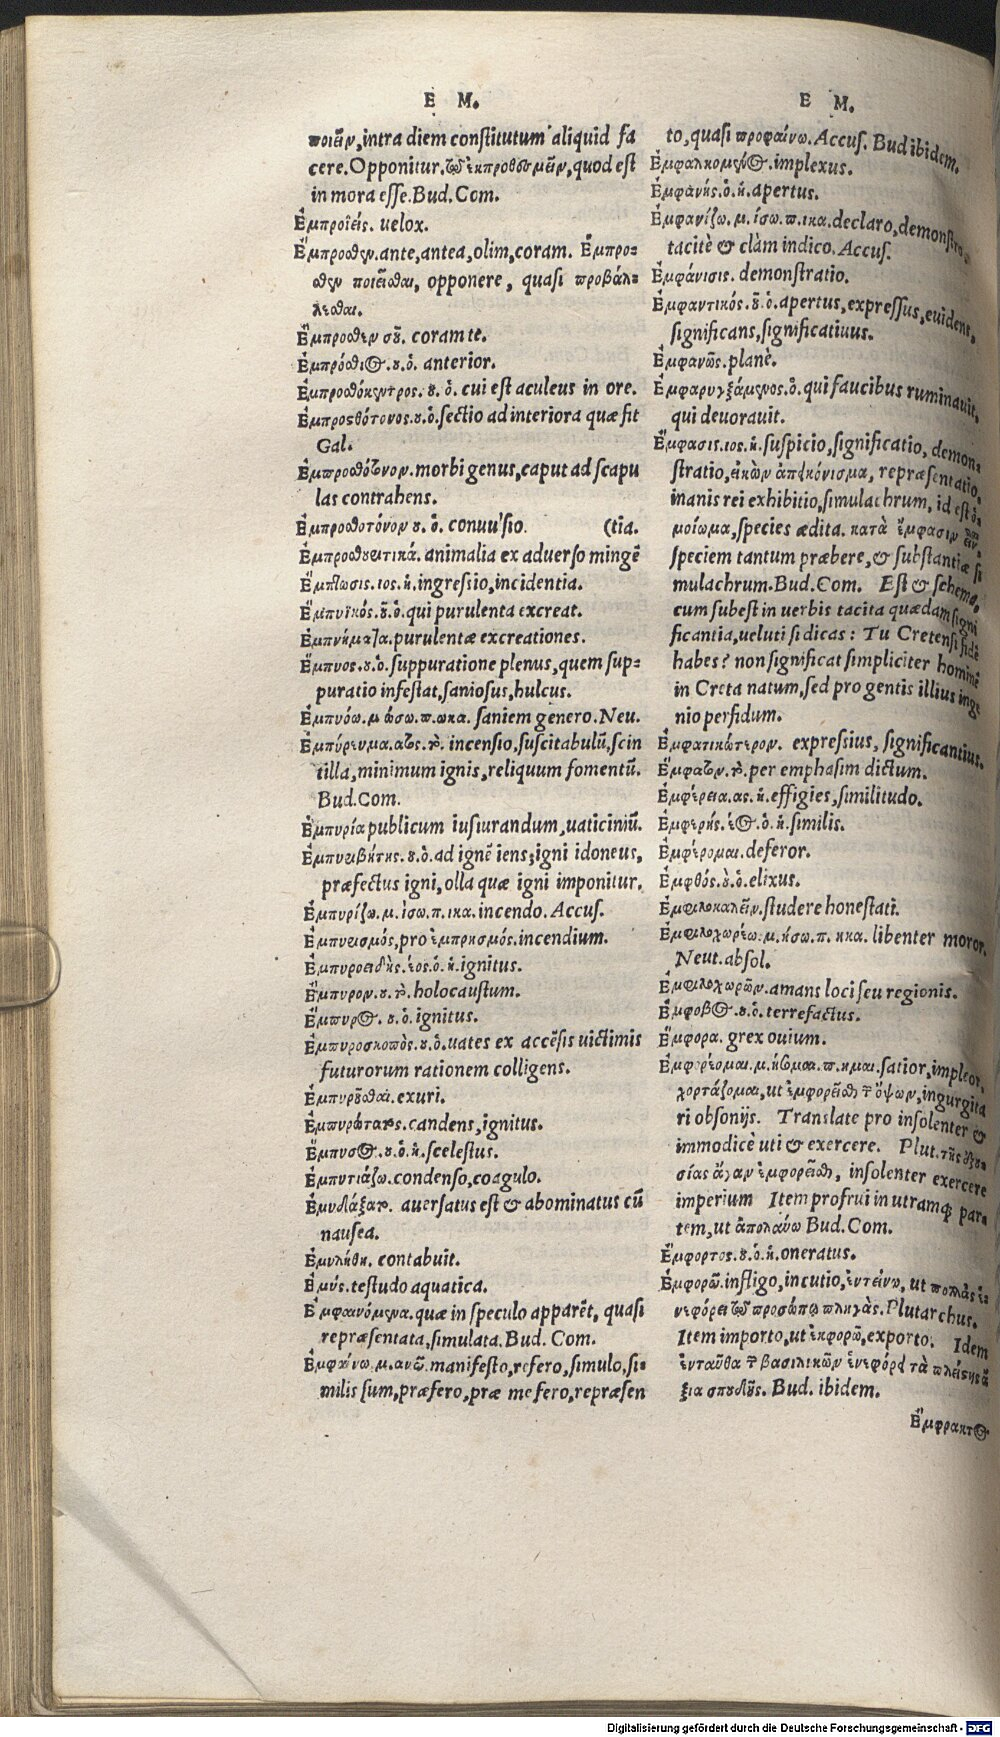 E M.
ποιεῖν, intra diem constitutum aliquid fa
cere. Opponitur. τῷ ἐκπροθεσμεῖν, quod est
in mora esse. Bud. Com.
Ἐμπροΐεις. uelox.
Ἔμπροσθεν. ante, antea, olim, coram. Ἔμπρο=
σθεν ποιεῖσθαι, opponere, quasi προβάλ=
λεσθαι.
Ἔμπροσθεν σοῦ. coram te.
Ἐμπρόσθιος. ου. ὁ. anterior.
Ἐμπροσθόκεντρος. ου. ὁ. cui est aculeus in ore.
Ἐμπροσθότονος. ου. ὁ. sectio ad interiora quæ fit
Gal.
Ἐμπροσθότονον. morbi genus, caput ad scapu
las contrahens.
Ἐμπροσθοτόνον ου. ὁ. conuulsio. (tia.
Ἐμπροσθουρητικά. animalia ex aduerso mingē
Ἔμπτωσις. ιος. ἡ. ingressio, incidentia.
Ἐμπυϊκός. οῦ. ὁ. qui purulenta excreat.
Ἐμπυήματα. purulentæ excreationes.
Ἔμπυος. ου. ὁ. suppuratione plenus, quem sup=
puratio infestat, saniosus, hulcus.
Ἐμπυόω. μ. ώσω. π. ωκα. saniem genero. Neu.
Ἐμπύρευμα. ατος. τό. incensio, suscitabulū, scin
tilla, minimum ignis, reliquum fomentū.
Bud. Com.
Ἐμπυρία publicum iusiurandum, uaticiniū.
Ἐμπυριβήτης. ου. ὁ. ad ignē iens, igni idoneus,
præfectus igni, olla quæ igni imponitur.
Ἐμπυρίζω. μ. ίσω. π. ικα. incendo. Accus.
Ἐμπυρισμός, pro ἐμπρησμός. incendium.
Ἐμπυροειδής. έος. ὁ. ἡ. ignitus.
Ἔμπυρον. ου. τό. holocaustum.
Ἔμπυρος. ου. ὁ. ignitus.
Ἐμπυροσκοπός. ου. ὁ. uates ex accēsis uictimis
futurorum rationem colligens.
Ἐμπυροῦσθαι. exuri.
Ἐμπυρώτατος. candens, ignitus.
Ἔμπυσος. ου. ὁ. ἡ. scelestus.
Ἐμπυτιάζω. condenso, coagulo.
Ἐμυδάξατο. auersatus est & abominatus cū
nausea.
Ἐμυλήθη. contabuit.
Ἐμύς. testudo aquatica.
Ἐμφαινόμενα. quæ in speculo apparēt, quasi
repræsentata, simulata. Bud. Com.
Ἐμφαίνω. μ. ανῶ. manifesto, refero, simulo, si=
milis sum, præfero, præ me fero, repræsen
E M.
to, quasi προφαίνω. Accus. Bud ibidem.
Ἐμφαλκομένος. implexus.
Ἐμφανής. ὁ. ἡ. apertus.
Ἐμφανίζω. μ. ίσω. π. ικα. declaro, demonstro,
tacitè & clàm indico. Accus.
Ἐμφάνισις. demonstratio.
Ἐμφαντικός. οῦ. ὁ. apertus, expressus, euidens,
significans, significatiuus.
Ἐμφανῶς. planè.
Ἐμφαρυγξάμενος. ὁ. qui faucibus ruminauit,
qui deuorauit.
Ἔμφασις. ιος. ἡ. suspicio, significatio, demon=
stratio, εἰκὼν ἀπεικόνισμα, repræsentatio,
inanis rei exhibitio, simulachrum, id est ὁ=
μοίωμα, species ædita. κατὰ ἔμφασιν
speciem tantum præbere, & substantiæ si
mulachrum. Bud. Com. Est & schema,
cum subest in uerbis tacita quædam signi
ficantia, ueluti si dicas: Tu Cretensi fidē
habes? non significat simpliciter hominē
in Creta natum, sed pro gentis illius inge
nio perfidum.
Ἐμφατικώτερον. expressius, significantius.
Ἔμφατον. τό. per emphasim dictum.
Ἐμφέρεια. ας. ἡ. effigies, similitudo.
Ἐμφερής. έος. ὁ. ἡ. similis.
Ἐμφέρομαι. deferor.
Ἐμφθός. οῦ. ὁ. elixus.
Ἐμφιλοκαλεῖν. studere honestati.
Ἐμφιλοχωρέω. μ. ήσω. π. ηκα. libenter moror.
Neut. absol.
Ἐμφιλοχωρῶν. amans loci seu regionis.
Ἔμφοβος. ου. ὁ. terrefactus.
Ἔμφορα. grex ouium.
Ἐμφορέομαι. μ. ήσομαι. π. ημαι. satior, impleor,
χορτάζομαι, ut ἐμφορεῖσθαι τῶν ὄψων, ingurgita
ri obsonijs. Translate pro insolenter &
immodicè uti & exercere. Plut. τῆς ἐξου=
σίας ἄγαν ἐμφορεῖσθαι, insolenter exercere
imperium Item profrui in utramq; par=
tem, ut ἀπολαύω Bud. Com.
Ἔμφορτος. ου. ὁ. ἡ. oneratus.
Ἐμφορῶ. infligo, incutio, ἐντείνω, ut πολλὰς ἐ=
νεφόρει τῷ προσώπῳ πληγάς. Plutarchus.
Item importo, ut ἐκφορῶ, exporto. Idem
ἐνταῦθα τῶν βασιλικῶν ἐνεφόρει τὰ πλείστης ἄ
ξια σπουδῆς. Bud. ibidem.
Ἔμφρακτος
Digitalisierung gefördert durch die Deutsche Forschungsgemeinschaft - DFG